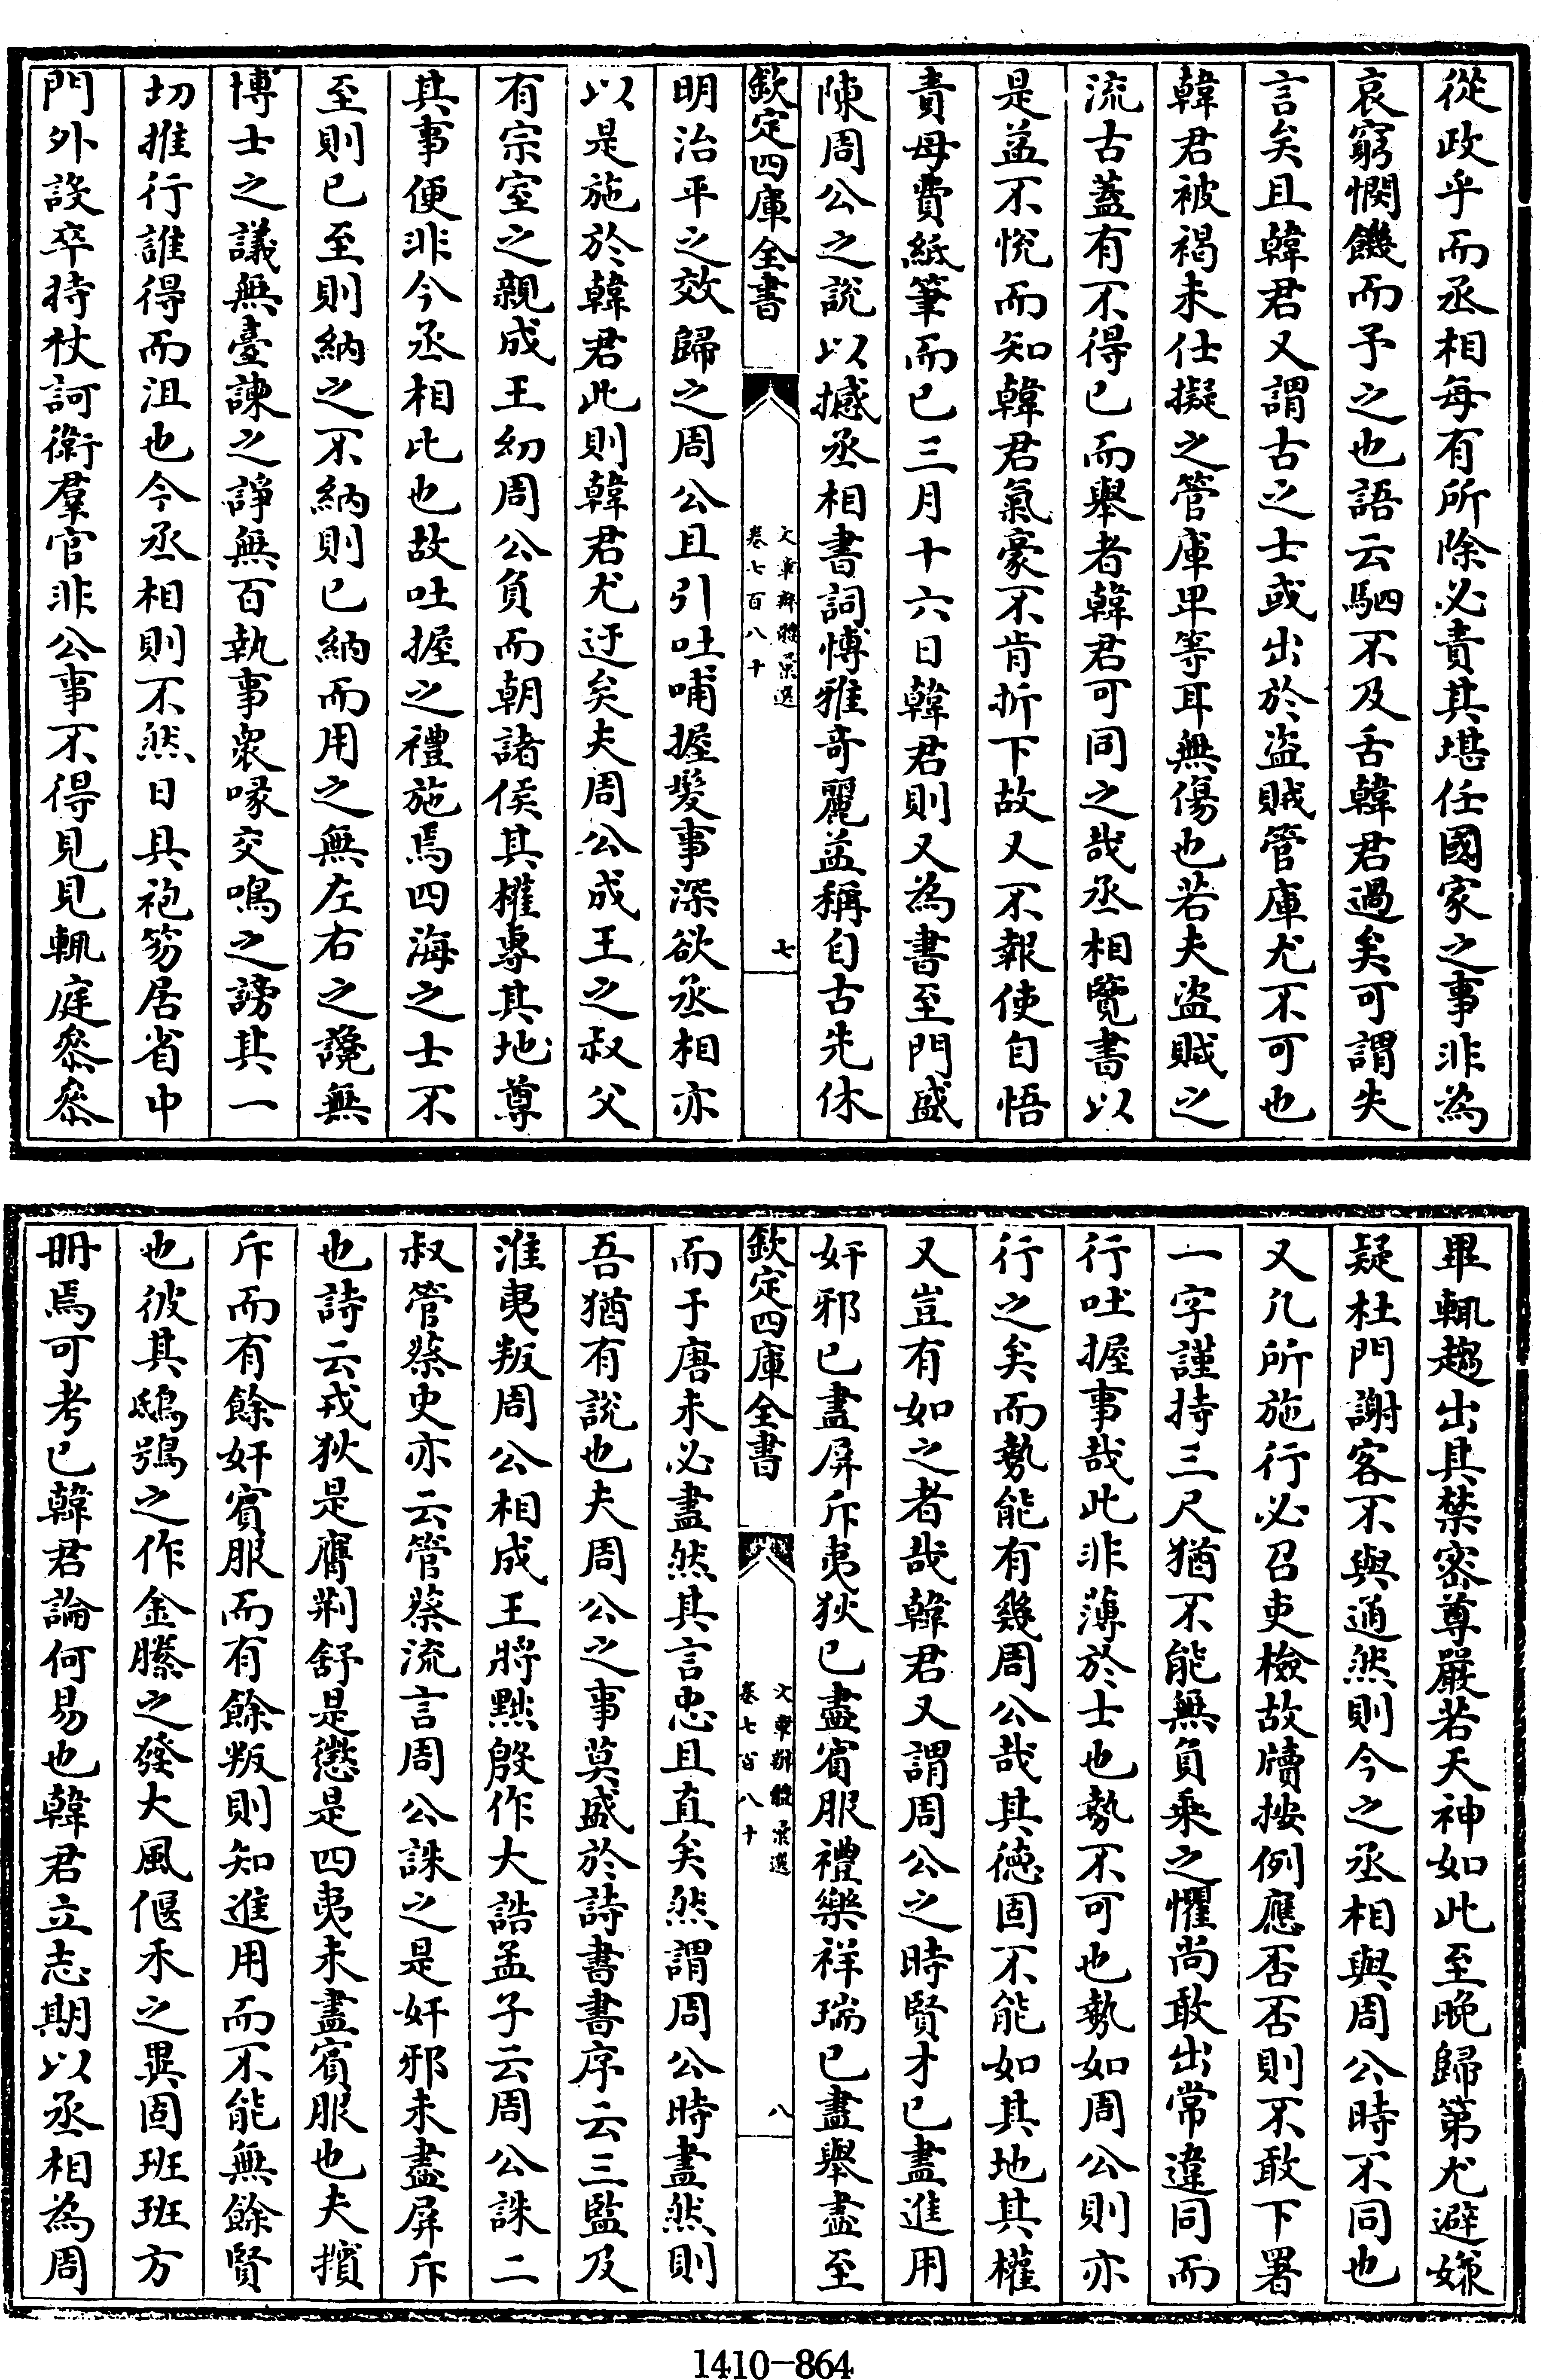 從政乎而丞相每有所除必責其堪任國家之事非為
哀窮憫饑而予之也語云駟不及舌韓君過矣可謂失
言矣且韓君又謂古之士或出於盜賊管庫尤不可也
韓君被褐未仕擬之管庫卑等耳無傷也若夫盜賊之
流古蓋有不得已而舉者韓君可同之哉丞相覽書以
是益不悅而知韓君氣豪不肯折下故又不報使自悟
責毋費紙筆而已三月十六日韓君則又為書至門盛
陳周公之說以撼丞相書詞博雅奇麗益稱自古先休
欽定四庫全書
文章辨體彙選
卷七百八十
七
明治平之效歸之周公且引吐哺握髮事深欲丞相亦
以是施於韓君此則韓君尤迂矣夫周公成王之叔父
有宗室之親成王幼周公負而朝諸侯其權專其地尊
其事便非今丞相比也故吐握之禮施焉四海之士不
至則已至則納之不納則已納而用之無左右之讒無
博士之議無臺諫之諍無百執事衆喙交鳴之謗其一
切推行誰得而沮也今丞相則不然日具袍笏居省中
門外設卒持杖訶衛羣官非公事不得見見輒庭叅叅
畢輒趨出其禁密尊嚴若天神如此至晚歸第尤避嫌
疑杜門謝客不與通然則今之丞相與周公時不同也
又凡所施行必召吏檢故牘按例應否否則不敢下署
一字謹持三尺猶不能無負乗之懼尚敢出常違同而
行吐握事哉此非薄於士也勢不可也勢如周公則亦
行之矣而勢能有幾周公哉其德固不能如其地其權
又豈有如之者哉韓君又謂周公之時賢才已盡進用
奸邪已盡屏斥夷狄已盡賓服禮樂祥瑞已盡舉盡至
欽定四庫全書
文章辨體彙選
卷七百八十
八
而于唐未必盡然其言忠且直矣然謂周公時盡然則
吾猶有說也夫周公之事莫盛於詩書書序云三監及
淮夷叛周公相成王將黜殷作大誥孟子云周公誅二
叔管蔡史亦云管蔡流言周公誅之是奸邪未盡屏斥
也詩云戎狄是膺荆舒是懲是四夷未盡賓服也夫擯
斥而有餘奸賓服而有餘叛則知進用而不能無餘賢
也彼其鴟鴞之作金縢之發大風偃禾之異固班班方
冊焉可考已韓君論何易也韓君立志期以丞相為周
1410-864